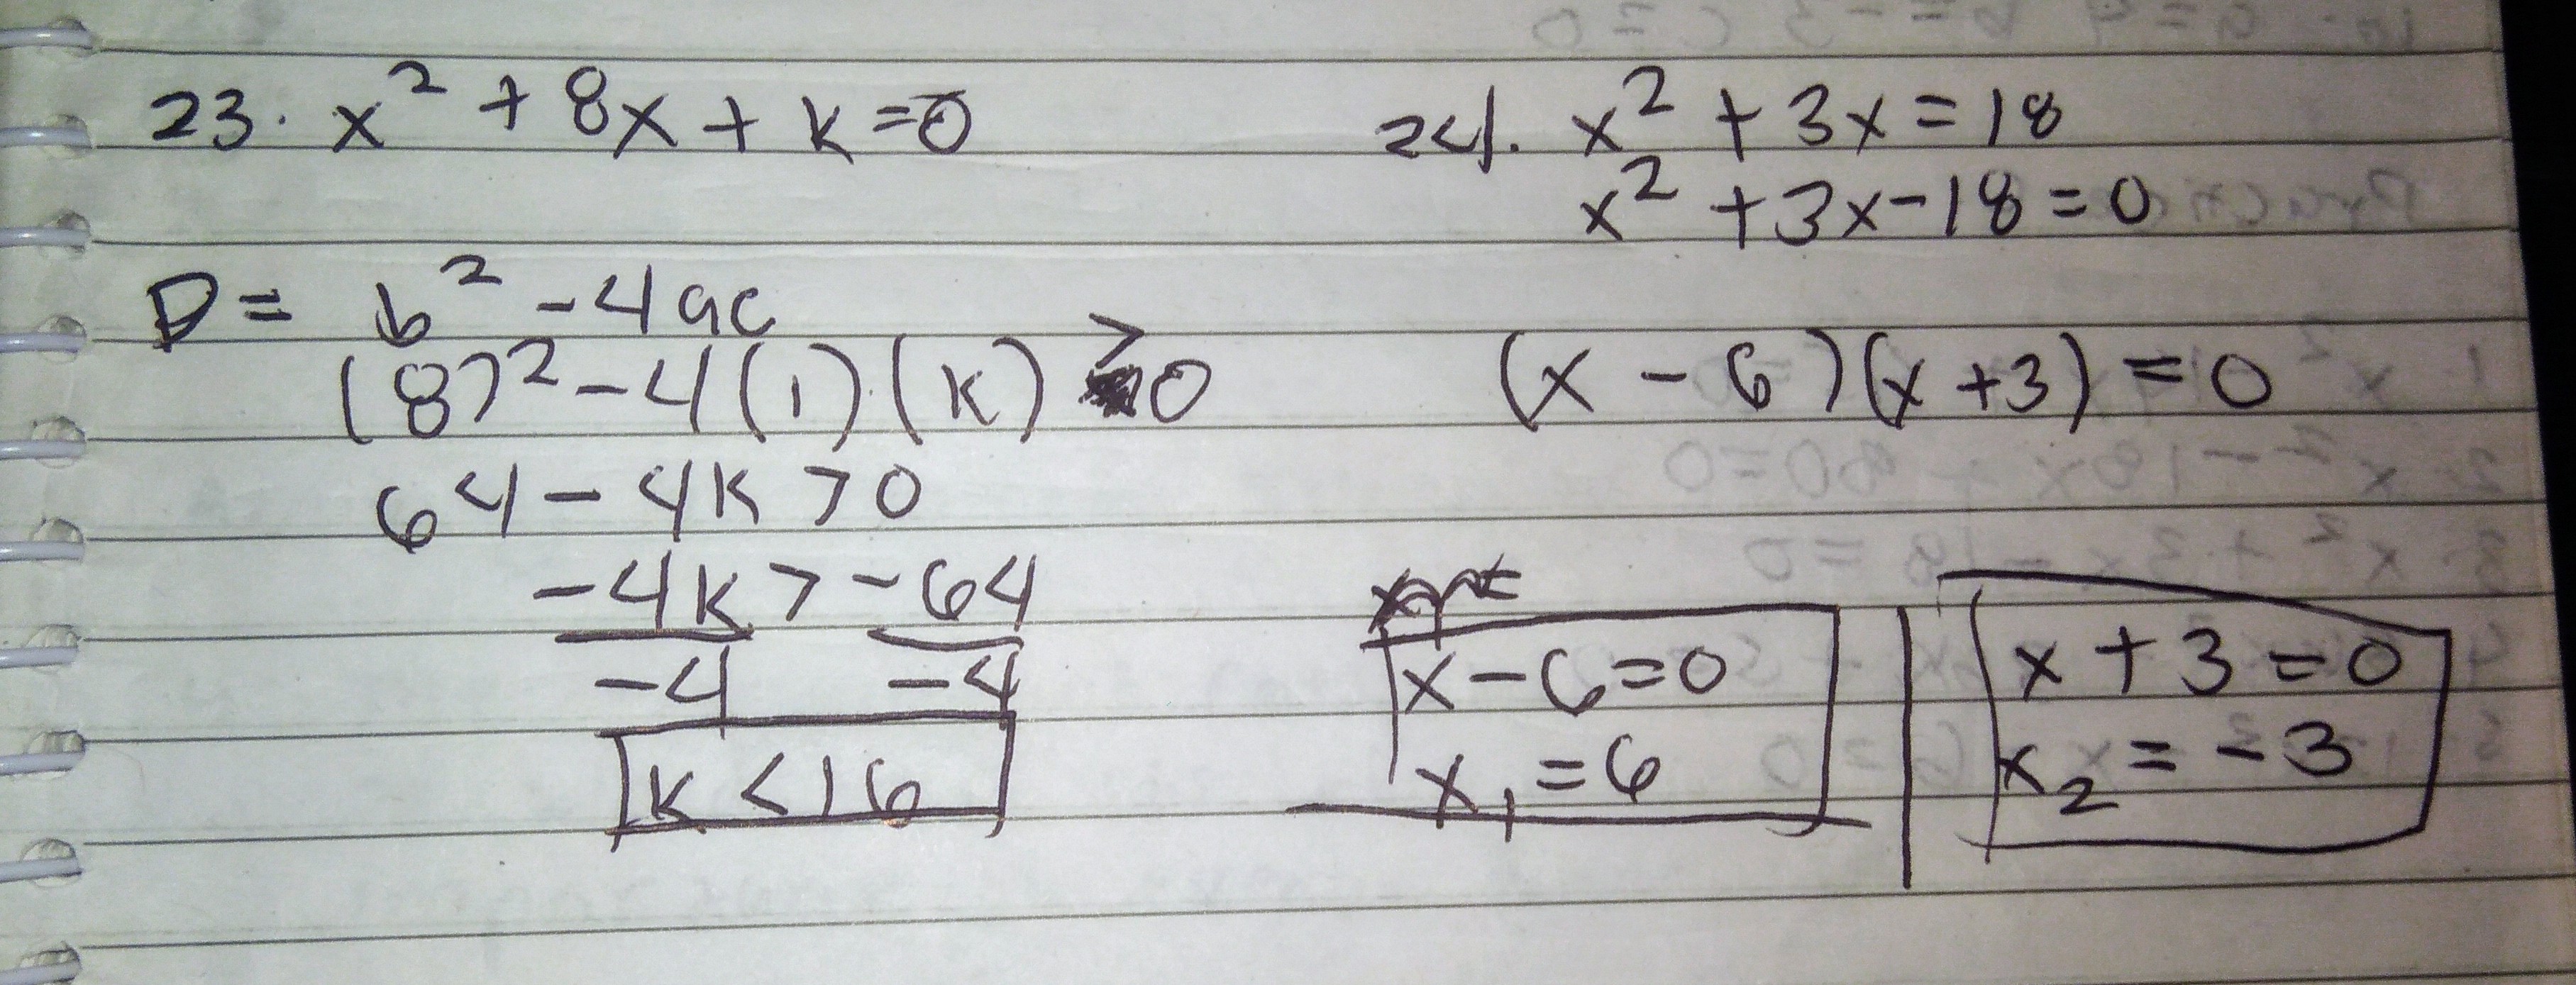 23. x² + 8x + k = 0
D = b² - 4ac
(8)² - 4(1)(k) > 0
64 - 4k > 0
-4k > -64
-4 -4
k < 16
24. x² + 3x = 18
x² + 3x - 18 = 0
(x - 6)(x + 3) = 0
x - 6 = 0
x₁ = 6
x + 3 = 0
x₂ = -3